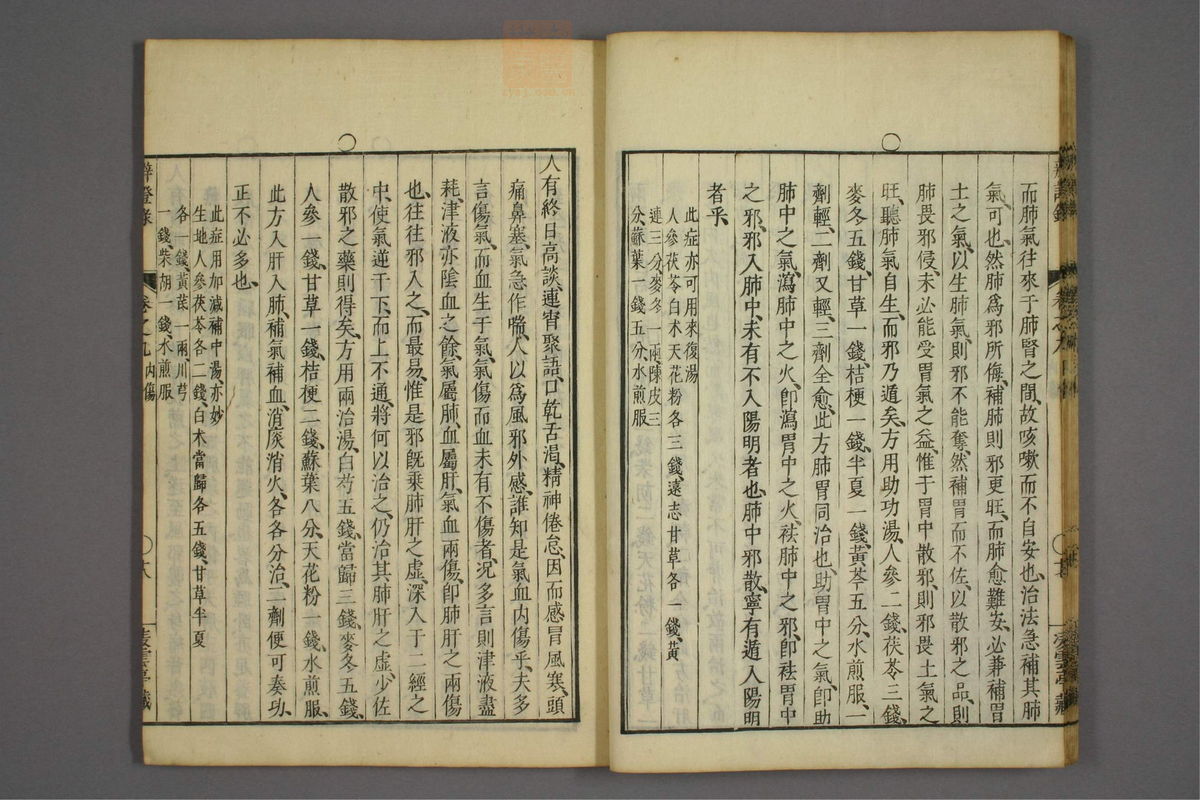 而肺氣往來于肺腎之間、故咳嗽而不自安也、治法急補其肺
氣可也、然肺爲邪所侮、補肺則邪更旺、而肺愈難安、必兼補胃
土之氣、以生肺氣、則邪不能奪、然補胃而不佐、以散邪之品、則
肺畏邪侵、未必能受胃氣之益、惟于胃中散邪、則邪畏土氣之
旺、聽肺氣自生、而邪乃遁矣、方用助功湯、人參二錢、茯苓三錢、
麥冬五錢、甘草一錢、桔梗一錢、半夏一錢、黃芩五分、水煎服、一
劑輕、二劑又輕、三劑全愈、此方肺胃同治也、助胃中之氣、卽助
肺中之氣、瀉肺中之火、卽瀉胃中之火、祛肺中之邪、卽祛胃中
之邪、邪入肺中、未有不入陽明者也、肺中邪散、寧有遁入陽明
者乎、
此症亦可用來復湯
人參茯苓白术天花粉各三錢、遠志甘草各一錢、黃
連三分、麥冬一兩、陳皮三
分、蘇葉一錢五分、水煎服
人有終日高談、連宵聚語、口乾舌渴、精神倦怠、因而感冒風寒、頭
痛鼻塞、氣急作喘、人以爲風邪外感、誰知是氣血內傷乎、夫多
言傷氣、而血生于氣、氣傷而血未有不傷者、况多言則津液盡
耗、津液亦陰血之餘、氣屬肺、血屬肝、氣血兩傷、卽肺肝之兩傷
也、往往邪入之、而最易、惟是邪旣乘肺肝之虛、深入于二經之
中、使氣逆于下、而上不通、將何以治之、仍治其肺肝之虛、少佐
散邪之藥則得矣、方用兩治湯、白芍五錢、當歸三錢、麥冬五錢、
人參一錢、甘草一錢、桔梗二錢、蘇葉八分、天花粉一錢、水煎服、
此方入肝入肺、補氣補血、消痰消火、各各分治、二劑便可奏功、
正不必多也、
此症用加減補中湯亦妙
生地人參茯苓各二錢、白术當歸各五錢、甘草半夏
各一錢、黃芪一兩、川芎
一錢、柴胡一錢、水煎服
辨證錄 卷之九內傷 十八